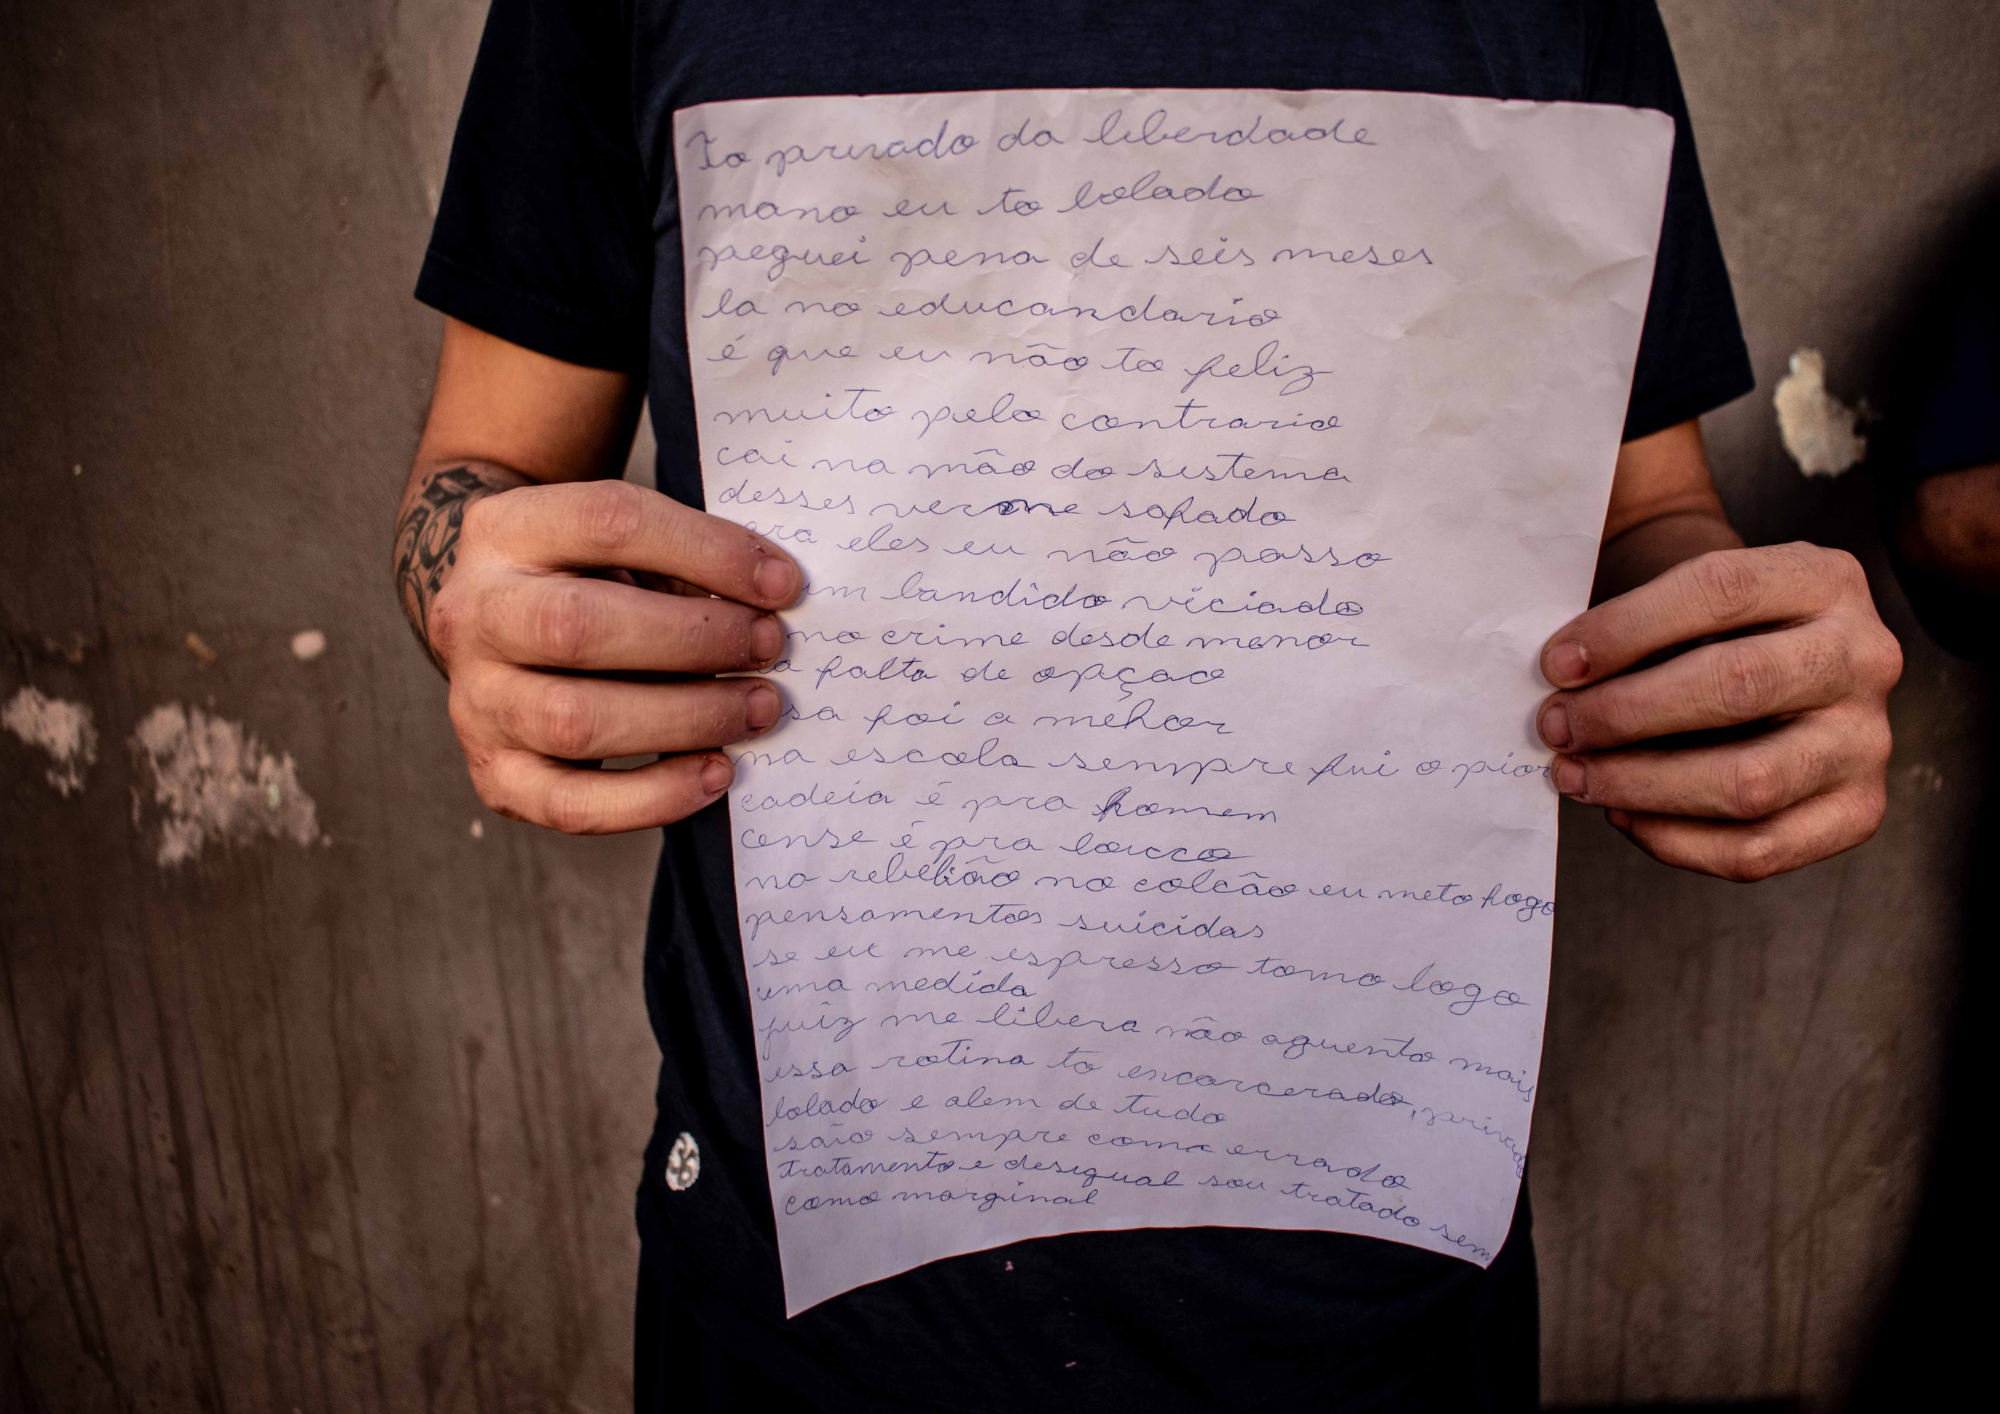 To privado da liberdade
mano eu to bolado
peguei pena de seis meses
la no educandario
é que eu não to feliz
muito pelo contrario
cai na mão do sistema
desses verme safado
ara eles eu não passo
um bandido viciado
no crime desde menor
a falta de opçao
sa foi a mehor
na escola sempre fui o pior
cadeia é pra homem
cense é pra loucco
na rebelião no colcão eu meto fogo
pensamentos suicidas
se eu me espresso tomo logo
uma medida
juiz me libera não aguento mais
essa rotina to encarcerado, privado
bolado e alem de tudo
saio sempre como errado
tratamento e desigual sou tratado sem
como marginal